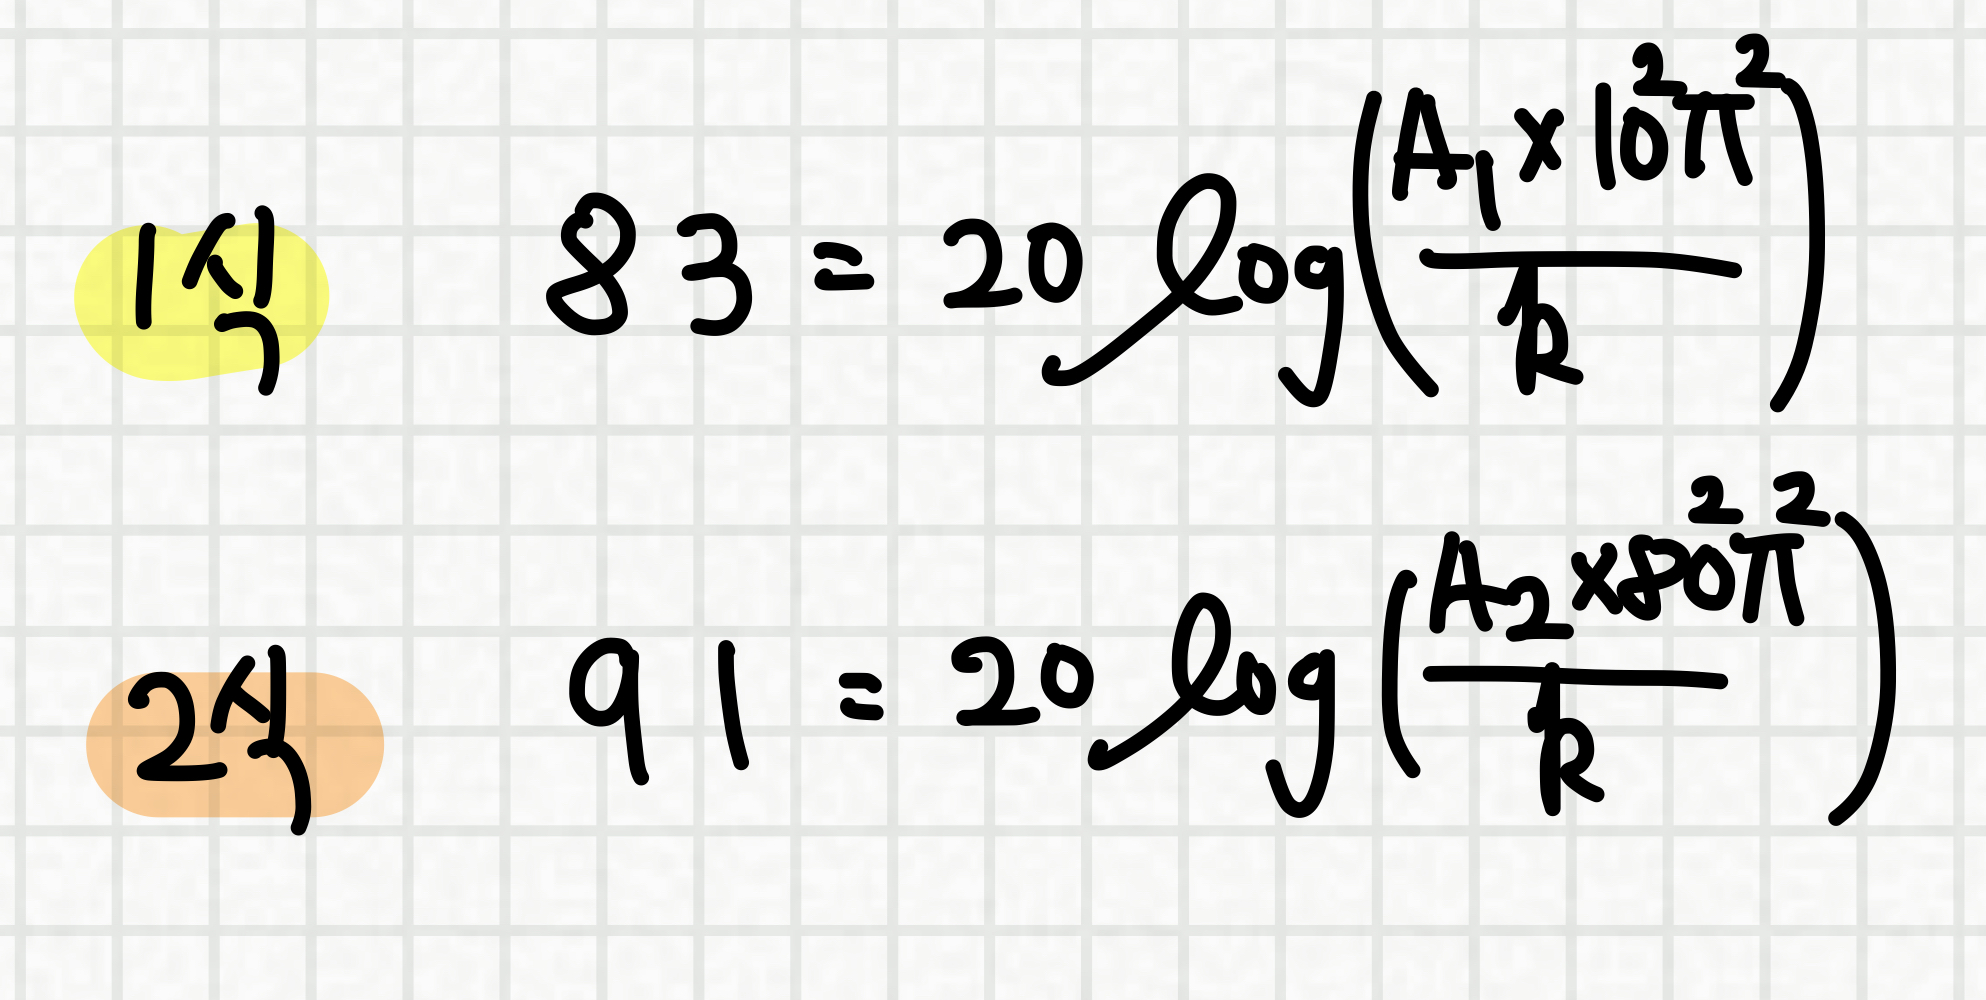 1식 83 = 20 log(A₁ × 10²π² / k)
2식 91 = 20 log(A₂ × 80²π² / k)